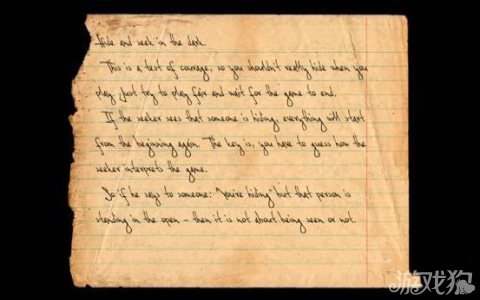 Hide and seek in the dark.
This is a test of courage, so you shouldn't really hide when you
play. Just try to play fair and wait for the game to end.
If the seeker sees that someone is hiding, everything will start
from the beginning again. The key is, you have to guess how the
seeker interprets the game.
So if he says to someone: "You're hiding" but that person is
standing in the open - then it is not about being seen or not.
游戏狗